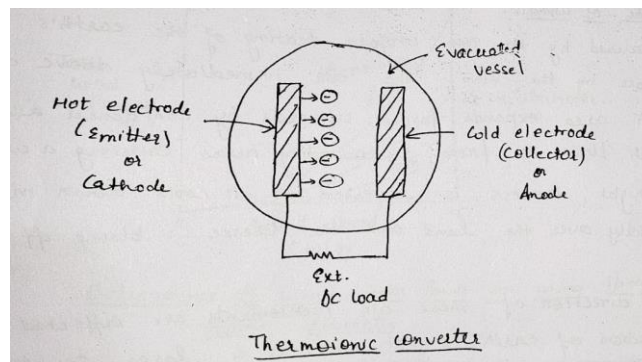 Evacuated
vessel
Hot electrode
(Emitter)
or
Cathode
Cold electrode
(Collector)
or
Anode
Ext.
DC load
Thermoionic converter